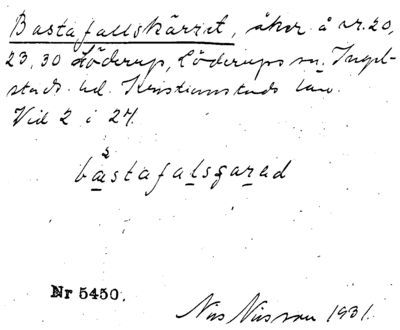 Bastafallskärret, åker å nr. 20,
23, 30 Löderup, Löderups sn. Ingel-
stads hd. Kristianstads län.
Vid 2 i 24.
bastafalsgarad
Nr 5450.
Nils Nilsson 1931.